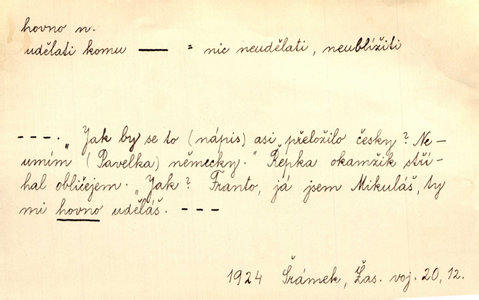 hovno n.
udělati komu — = nic neudělati, neublížiti
---. „Jak by se to (nápis) asi přeložilo česky? Ne-
umím (Pavelka) německy." Řepka okamžik stří-
hal obličejem. „Jak? Franto, já jsem Mikuláš, ty
mi hovno uděláš. ---
1924 Šrámek, Žas. voj. 20, 12.